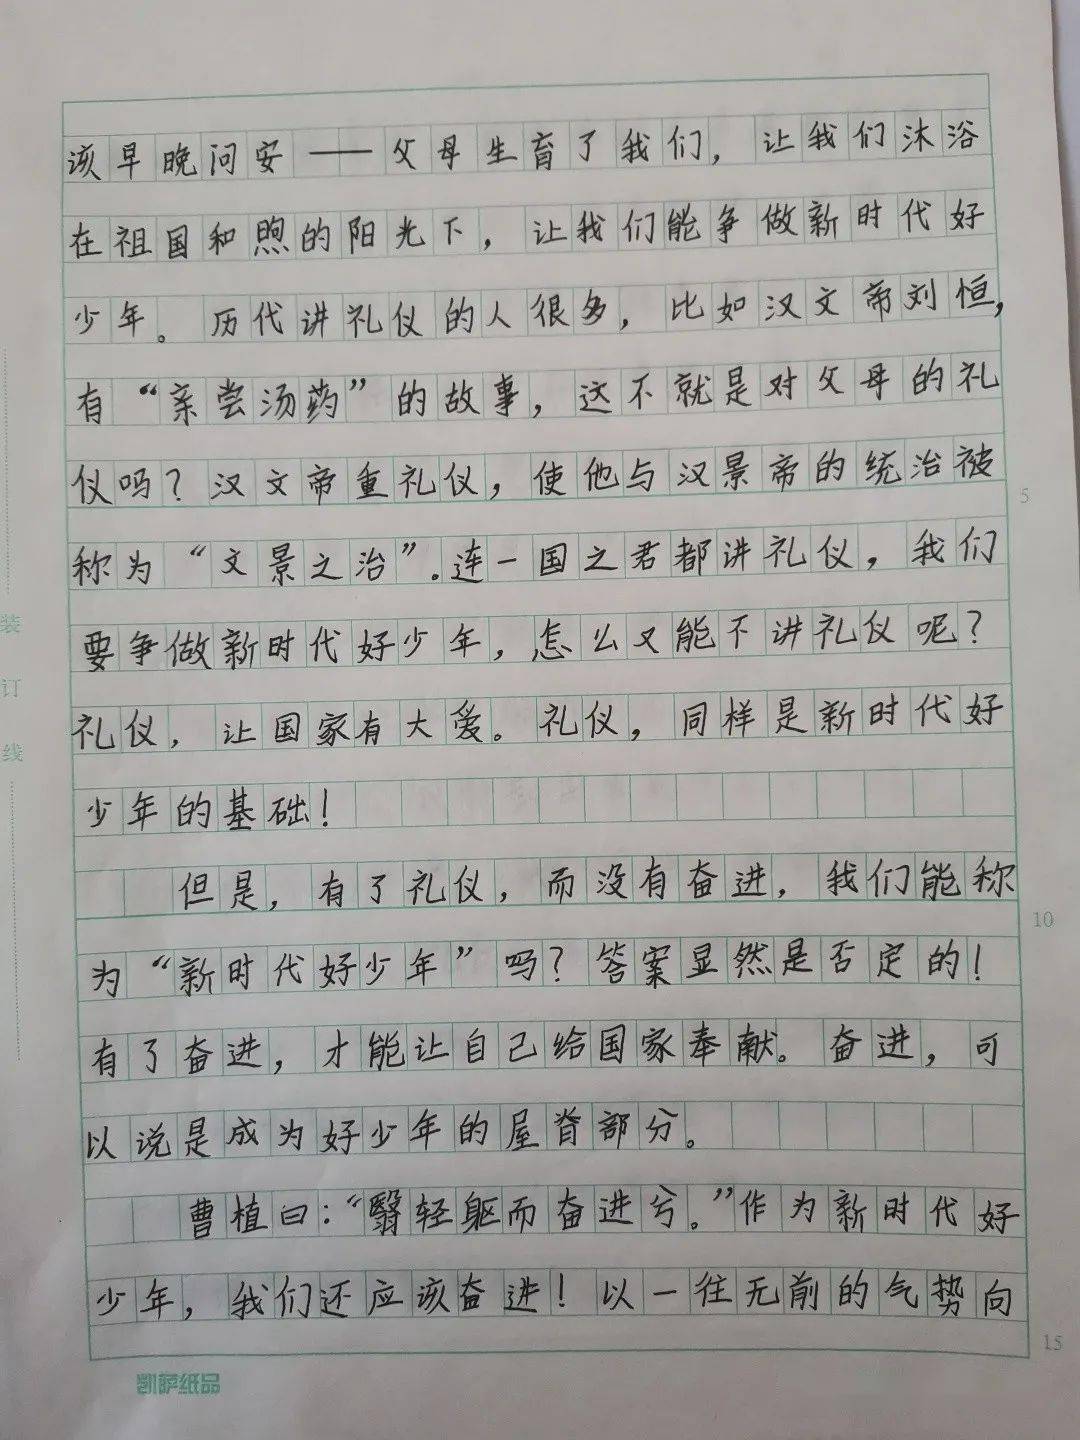 该早晚问安——父母生育了我们，让我们沐浴
在祖国和煦的阳光下，让我们能争做新时代好
少年。历代讲礼仪的人很多，比如汉文帝刘恒，
有“亲尝汤药”的故事，这不就是对父母的礼
仪吗？汉文帝重礼仪，使他与汉景帝的统治被
称为“文景之治”.连一国之君都讲礼仪，我们
要争做新时代好少年，怎么又能不讲礼仪呢？
礼仪，让国家有大爱。礼仪，同样是新时代好
少年的基础！
但是，有了礼仪，而没有奋进，我们能称
为“新时代好少年”吗？答案显然是否定的！
有了奋进，才能让自己给国家奉献。奋进，可
以说是成为好少年的屋脊部分。
曹植曰：“翳轻躯而奋进兮。”作为新时代好
少年，我们还应该奋进！以一往无前的气势向
5
10
15
装
订
线
凯萨纸品